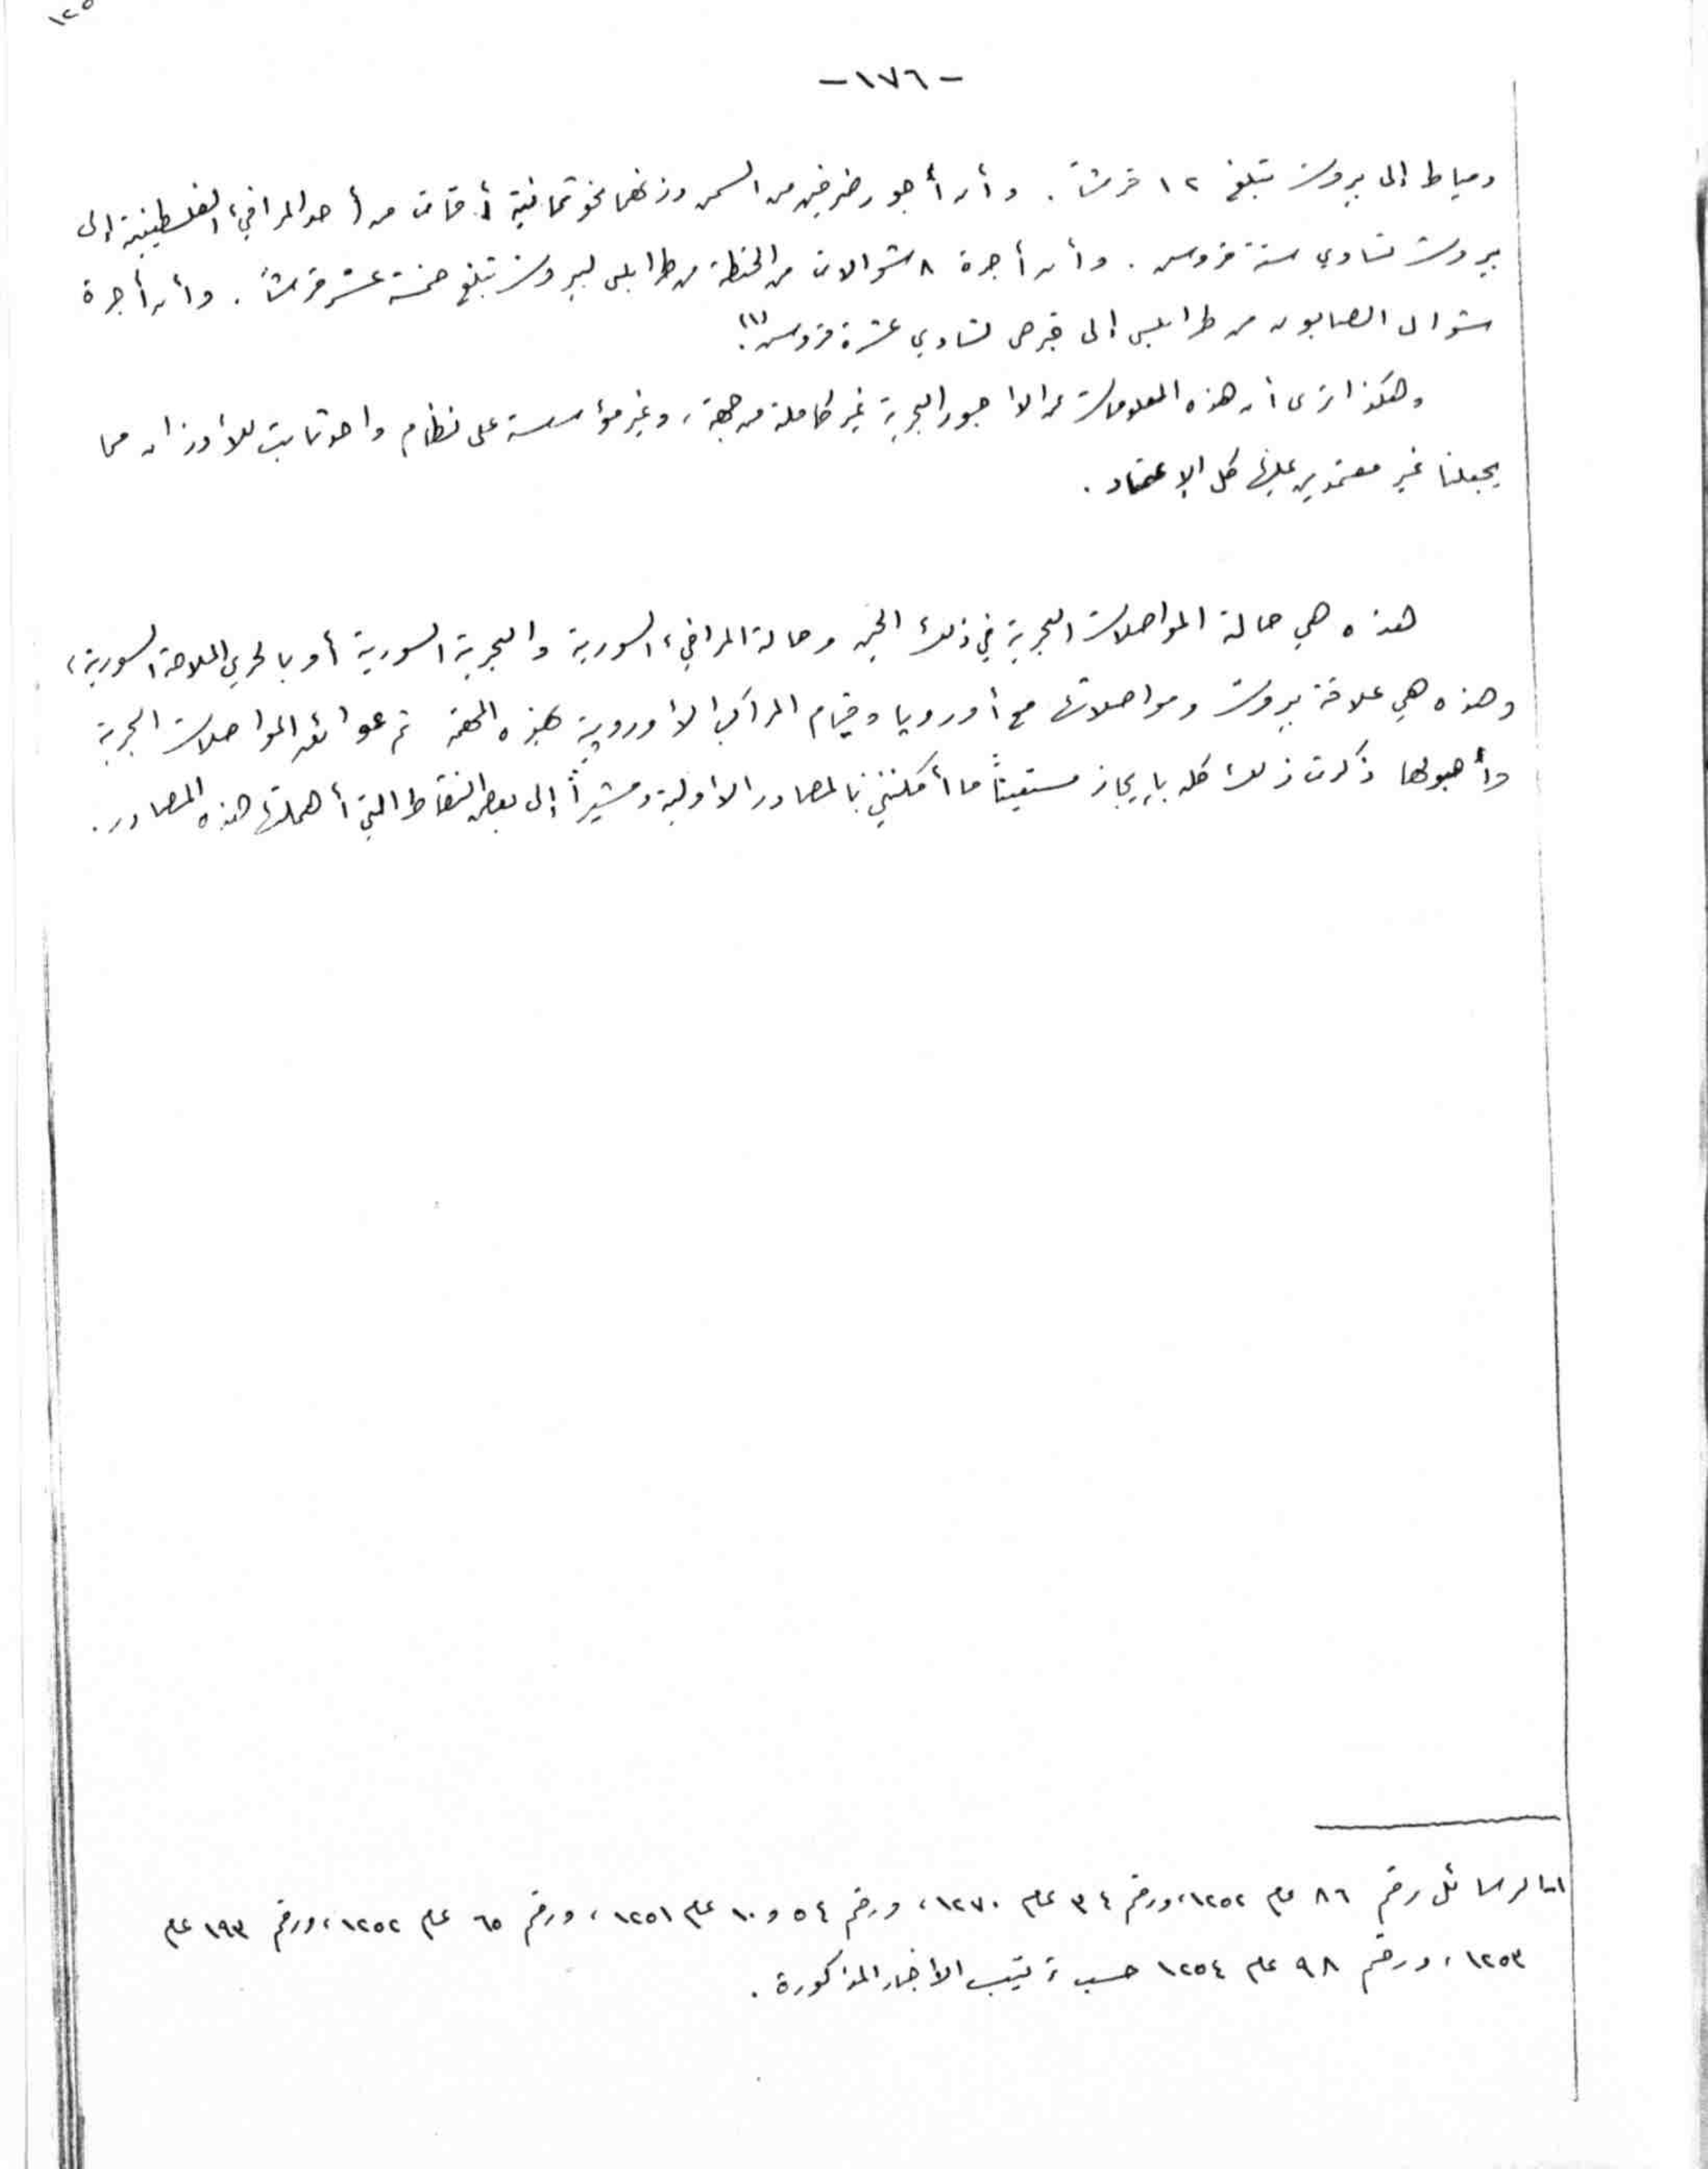 ١٢٥
-١٧٦-
دمياط إلى بيروت تبلغ ١٢ قرشاً. وأن أجور ظرفين من السمن وزنهما نحو ثمانية أقات من أحد المرافيء الفلسطينية إلى
بيروت تساوي ستة قروش. وأن أجرة ٨ شوالات من الحنطة من طرابلس لبيروت تبلغ خمسة عشر قرشاً. وأن أجرة
شوال الصابون من طرابلس إلى قبرص تساوي عشرة قروش(١).
وهكذا نرى أن هذه المعلومات عن الاجور البحرية غير كاملة من جهة، وغير مؤسسة على نظام واحد ثابت للأوزان مما
يجعلنا غير معتمدين عليها كل الإعتماد.
هذه هي حالة المواصلات البحرية في ذلك الحين وحالة المرافيء السورية والبحرية السورية أو بالحري الملاحة السورية،
وهذه هي علاقة بيروت ومواصلاتها مع أوروبا وقيام المراكب الأوروبية بهذه المهمة ثم عوائد المواصلات البحرية
وأصولها ذكرت ذلك كله بإيجاز مستعيناً ما أمكنني بالمصادر الاولية ومشيراً إلى بعض النقاط التي أهملتها هذه المصادر.
الرسائل رقم ٨٦ عام ١٢٥٢، ورقم ٣٤ عام ١٢٧٠، ورقم ٥٤ و ١٠ عام ١٢٥١، ورقم ٦٥ عام ١٢٥٢، ورقم ١٩٣ عام
١٢٥٣، ورقم ٩٨ عام ١٢٥٤ حسب ترتيب الاخبار المذكورة.